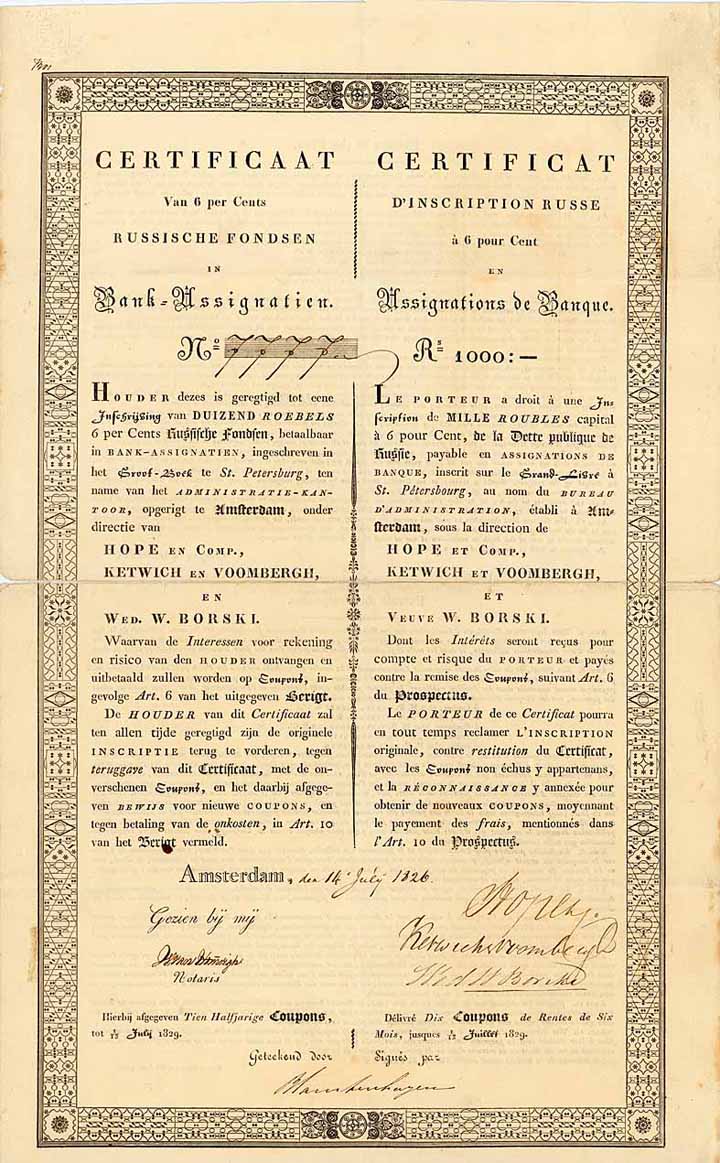 CERTIFICAAT
Van 6 per Cents
RUSSISCHE FONDSEN
IN
Bank-Assignatien.
CERTIFICAT
D'INSCRIPTION RUSSE
à 6 pour Cent
EN
Assignations de Banque.
Nº 7777
Rˢ 1000:—
HOUDER dezes is geregtigd tot eene
Inschrijving van DUIZEND ROEBELS
6 per Cents Russische Fondsen, betaalbaar
in BANK-ASSIGNATIEN, ingeschreven in
het Groot-Boek te St. Petersburg, ten
name van het ADMINISTRATIE-KAN-
TOOR, opgerigt te Amsterdam, onder
directie van
HOPE EN COMP.,
KETWICH EN VOOMBERGH,
EN
WED. W. BORSKI.
Waarvan de Interessen voor rekening
en risico van den HOUDER ontvangen en
uitbetaald zullen worden op Coupons, in-
gevolge Art. 6 van het uitgegeven Berigt.
De HOUDER van dit Certificaat zal
ten allen tijde geregtigd zijn de originele
INSCRIPTIE terug te vorderen, tegen
teruggave van dit Certificaat, met de on-
verschenen Coupons, en het daarbij afgege-
ven BEWIJS voor nieuwe COUPONS, en
tegen betaling van de onkosten, in Art. 10
van het Berigt vermeld.
LE PORTEUR a droit à une In-
scription de MILLE ROUBLES capital
à 6 pour Cent, de la Dette publique de
Russie, payable en ASSIGNATIONS DE
BANQUE, inscrit sur le Grand-Livre à
St. Pétersbourg, au nom du BUREAU
D'ADMINISTRATION, établi à Am-
sterdam, sous la direction de
HOPE ET COMP.,
KETWICH ET VOOMBERGH,
ET
VEUVE W. BORSKI.
Dont les Intérêts seront reçus pour
compte et risque du PORTEUR et payés
contre la remise des Coupons, suivant Art. 6
du Prospectus.
Le PORTEUR de ce Certificat pourra
en tout temps reclamer L'INSCRIPTION
originale, contre restitution du Certificat,
avec les Coupons non échus y appartenans,
et la RÉCONNAISSANCE y annexée pour
obtenir de nouveaux COUPONS, moyennant
le payement des frais, mentionnés dans
l'Art. 10 du Prospectus.
Amsterdam, den 14 July 1826.
Gezien bij mij
Notaris
Hope &
Ketwich & Voombergh
Wed W Borski
Hierbij afgegeven Tien Halfjarige Coupons,
tot 1/13 Julij 1829.
Délivré Dix Coupons de Rentes de Six
Mois, jusques 1/13 Juillet 1829.
Geteekend door
Signés par